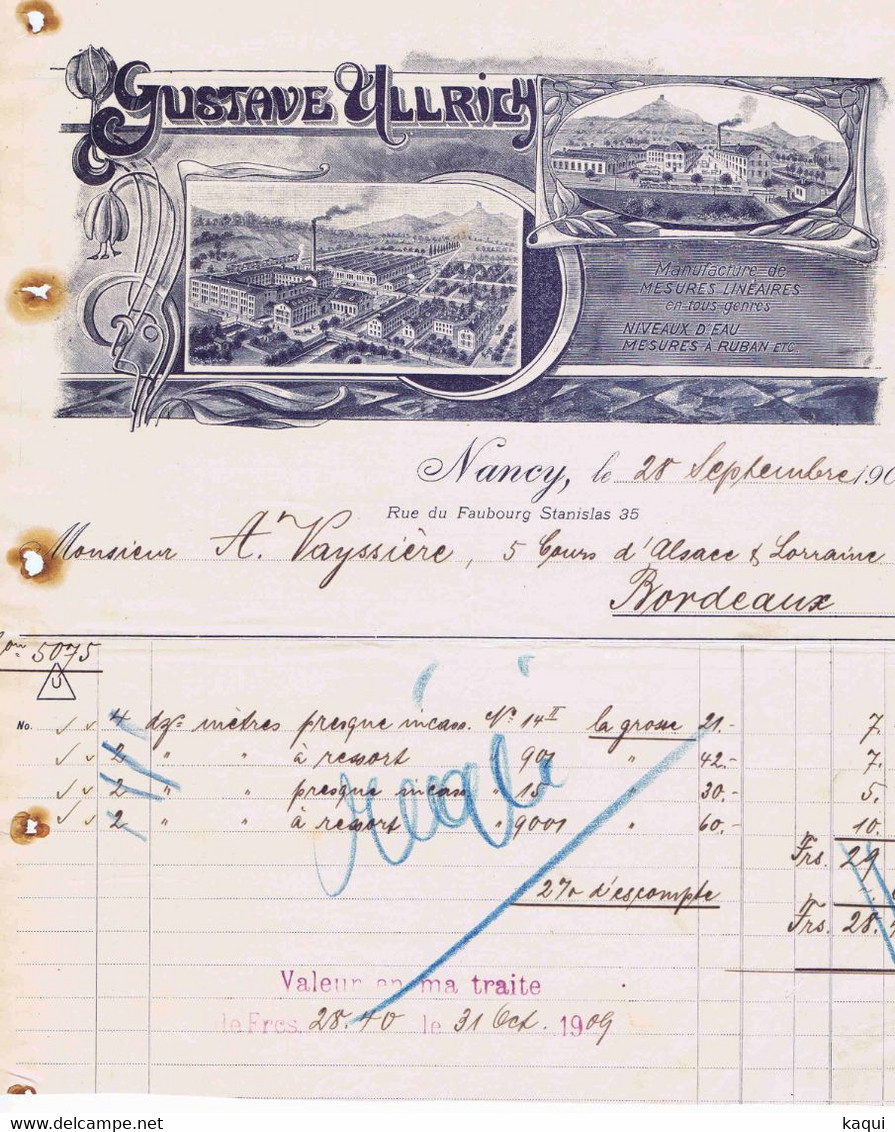 GUSTAVE ULLRICH
Manufacture de
MESURES LINÉAIRES
en tous genres
NIVEAUX D'EAU
MESURES À RUBAN ETC.
Nancy, le 28 Septembre 190
Rue du Faubourg Stanislas 35
Monsieur An Vayssière, 5 Cours d'Alsace & Lorraine
Bordeaux
5075
U
No. 4 dzs mètres presque incass. No 14II la grosse 21.- 7.
2 " " à ressort " 901 " 42.- 7.
2 " " presque incass. " 15 " 30.- 5.
2 " " à ressort " 9001 " 60.- 10.
Frs. 29
2% d'escompte
Frs. 28.
réglé
Valeur en ma traite
de Frcs. 28.40 le 31 Oct. 1909
delcampe.net
kaqui